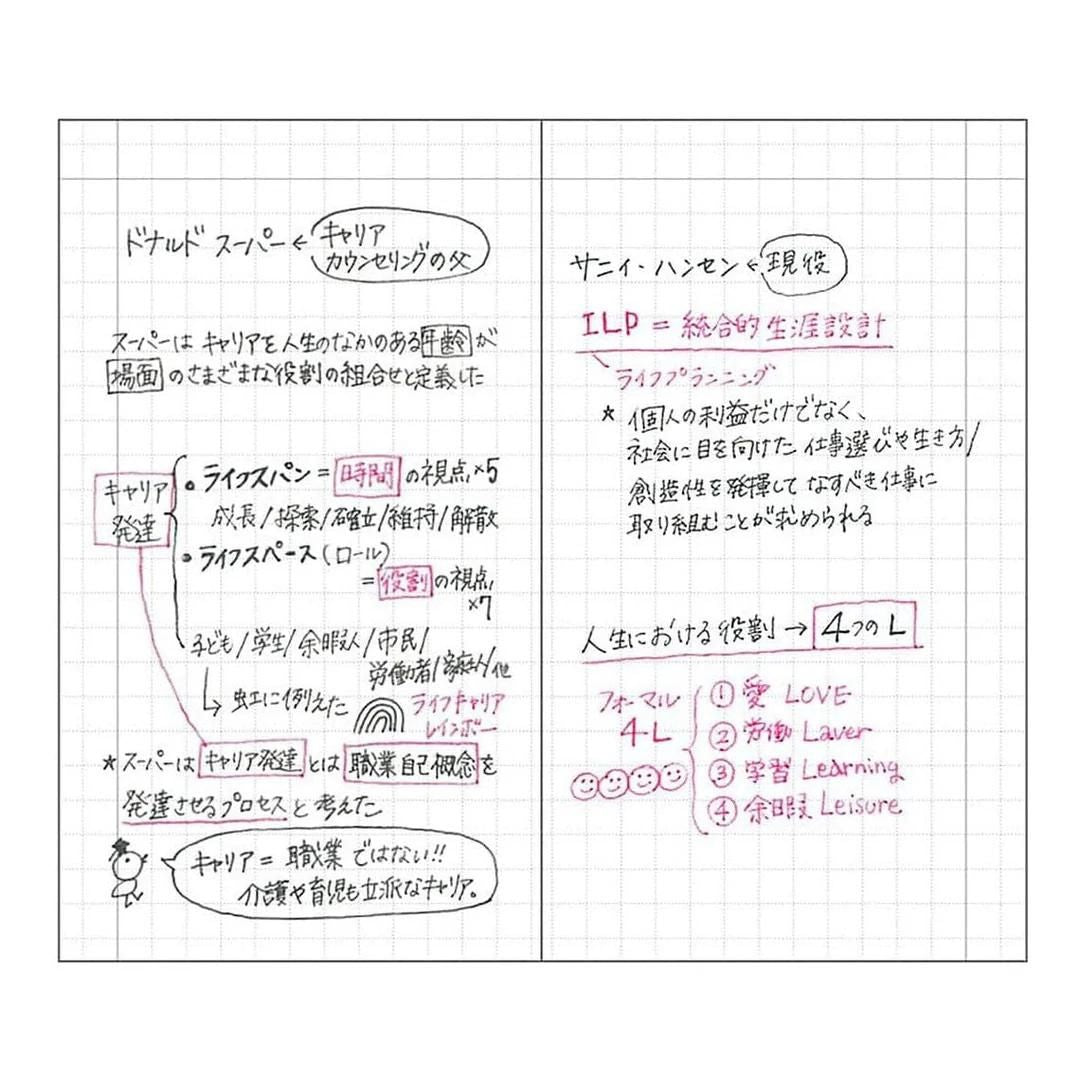 ドナルド スーパー ← キャリア
カウンセリングの父
スーパーは キャリアを人生のなかのある年齢が
場面のさまざまな役割の組合せと定義した
キャリア
発達
・ライフスパン = 時間の視点 ×5
成長/探索/確立/維持/解散
・ライフスペース(ロール)
= 役割の視点
×7
子ども/学生/余暇人/市民/
労働者/家庭人/他
↳ 虹に例えた
ライフキャリア
レインボー
★スーパーは キャリア発達 とは 職業自己概念を
発達させるプロセス と考えた
キャリア = 職業 ではない!!
介護や育児も立派なキャリア。
サニィ・ハンセン ← 現役
ILP = 統合的生涯設計
ライフプランニング
★ 個人の利益だけでなく、
社会に目を向けた 仕事選びや生き方/
創造性を発揮して なすべき仕事に
取り組むことが求められる
人生における役割 → 4つのL
フォーマル
4L
① 愛 LOVE
② 労働 Laver
③ 学習 Learning
④ 余暇 Leisure